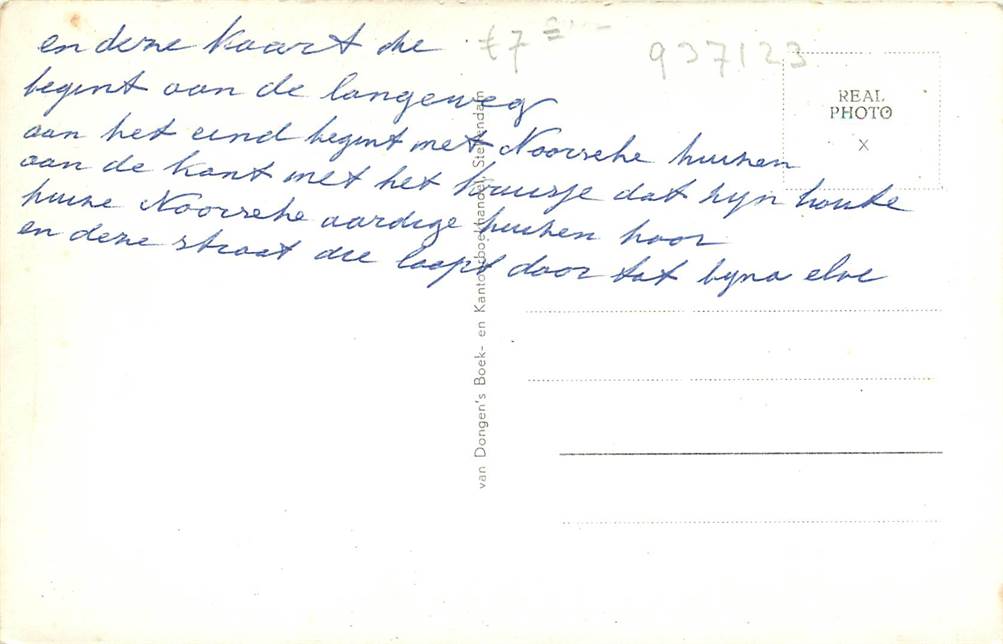 en deze kaart die
begint aan de langeweg
aan het eind begint met Noorsche huizen
aan de kant met het kruisje dat zijn houte
huize Noorsche aardige huizen hoor
en deze straat die loopt door tot byna elve
€7
937123
REAL
PHOTO
X
van Dongen's Boek- en Kantoorboekhandel, Stellendam